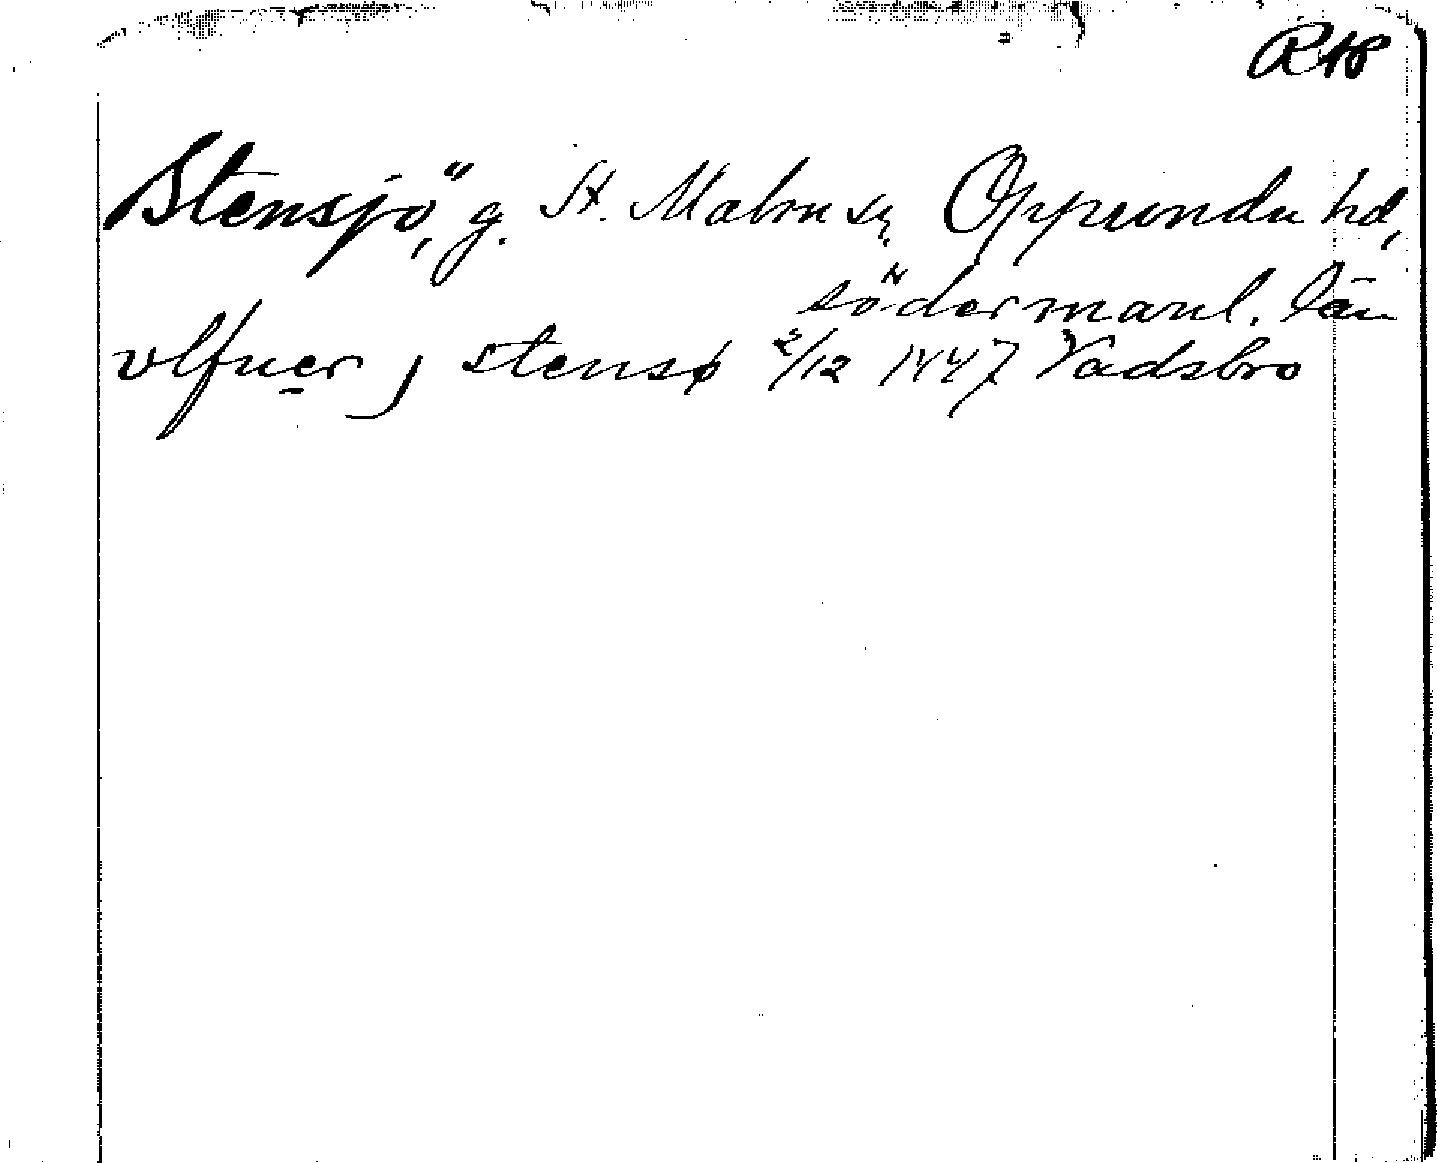 Rep
Stensjö, g. St. Malms sn, Oppunda hd,
södermanl. län
vlfuer j stensø 2/12 1447 Vadsbro